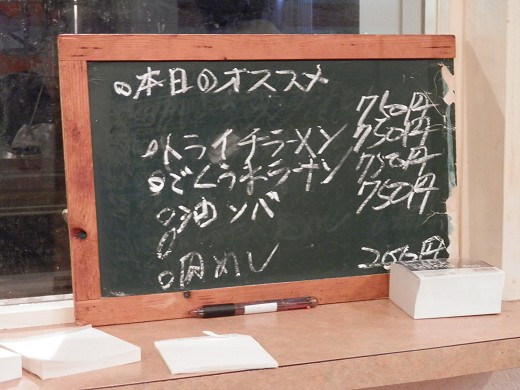 ○本日のオススメ
750円
○トライチラーメン 750円
○ごくうホラーメン 750円
○油ソバ 750円
○肉めし 200円